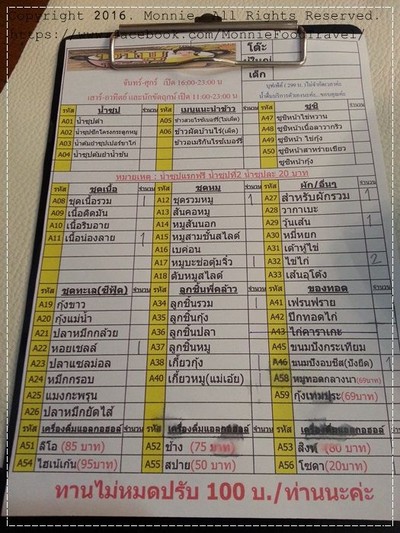 Copyright 2016. Monnie. All Rights Reserved.
https://www.facebook.com/MonnieFoodTravel/
โต๊ะ
เด็ก
จันทร์-ศุกร์ เปิด 16:00-23:00 น
เสาร์-อาทิตย์ และนักขัตฤกษ์ เปิด 11:00-23:00 น
รหัส น้ำซุป จำนวน รหัส เมนูแนะนำข้าว จำนวน รหัส ซูชิ จำนวน
A01 น้ำซุปดำ A05 A47 ซูชิหน้าไข่หวาน
A02 A06 ข้าวผัดบ้านไร่(เด็ด) A48
A03 A49 ซูชิหน้า ไข่กุ้ง
A04 น้ำซุปต้มยำน้ำข้น A50 ซูชิหน้าสาหร่ายเขียว
ซูชิหน้ากุ้ง
หมายเหตุ : น้ำซุปแรกฟรี น้ำซุปที่2 น้ำซุปละ 20 บาท
รหัส ชุดเนื้อ จำนวน รหัส ชุดหมู จำนวน รหัส ผัก/อื่นๆ จำนวน
A08 ชุดเนื้อรวม 1 A12 ชุดรวมหมู 1 A27 สำหรับผักรวม 1
A09 เนื้อติดมัน A13 สันคอหมู A28 วากาเมะ
A10 เนื้อริบอาย A14 หมูสันนอก A29 วุ้นเส้น 1
A11 เนื้อน่องลาย 1 A15 หมูสามชั้นสไลด์ A30 หมี่หยก
A16 เบค่อน A31 เต้าหู้ไข่
A17 หมูบะช่อตุ้มจิ๋ว 1 A32 ไข่ไก่ 2
A18 ตับหมูสไลด์ A33 เส้นอุโด้ง
รหัส ชุดทะเล(ซีฟู้ด) จำนวน รหัส ลูกชิ้นพี่คล้าว จำนวน รหัส ของทอด จำนวน
A19 กุ้งขาว A34 ลูกชิ้นรวม A41 เฟรนฟราย
A20 กุ้งแม่น้ำ A35 ลูกชิ้นกุ้ง A42 ปีกทอดไก่
A21 ปลาหมึกกล้วย A36 ลูกชิ้นปลา A43 ไก่คาราเกะ
A22 หอยเชลล์ 1 A37 ลูกชิ้นหมู A45 ขนมปังกระเทียม
A23 ปลาแซลม่อล A38 เกี๊ยวกุ้ง A46 ขนมปังอบชีส(ปังยืด) 1
A24 หมึกกรอบ A40 เกี๊ยวหมู(แม่เอ๋ย) A58 หมูทอดกลางนา(69บาท)
A25 แมงกะพรุน A59 กุ้งเทมปุระ(69บาท)
A26 ปลาหมึกยัดไส้
รหัส เครื่องดื่มแอลกอฮอล์ จำนวน รหัส เครื่องดื่มแอลกอฮอล์ จำนวน รหัส เครื่องดื่มแอลกอฮอล์ จำนวน
A51 ลีโอ (85 บาท) A52 ช้าง (75 บาท) A53 สิงห์ (80 บาท)
A54 ไฮเน้เก้น(95บาท) A55 สปาย(50 บาท) A56 โซดา(20บาท)
ทานไม่หมดปรับ 100 บ./ท่านนะค่ะ